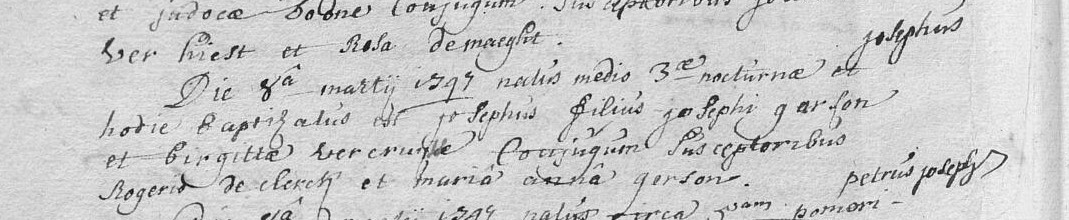 et judocæ boone Conjugum. Susceptoribus
ver hiest et Rosa demaeght.
josephus
Die 8â martij 1797 natus medio 3æ nocturnæ et
hodie baptizatus est josephus filius josephi garson
et birgittæ vercruysse Conjugum Susceptoribus
Rogerio de clerck et mariâ annâ gerson.
petrus joseph
Die 8â martij 1797 natus circa pomeri-